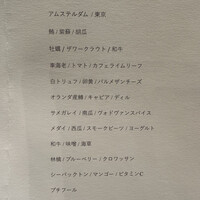 アムステルダム / 東京
鮪 / 茴蘇 / 胡瓜
牡蠣 / ザワークラウト / 和牛
車海老 / トマト / カフェライムリーフ
白トリュフ / 卵黄 / パルメザンチーズ
オランダ産鰻 / キャビア / ディル
サメガレイ / 南瓜 / ヴァドゥヴァンスパイス
メダイ / 西瓜 / スモークビーツ / ヨーグルト
和牛 / 味噌 / 蓮草
林檎 / ブルーベリー / クロワッサン
シーバックトン / マンゴー / ビタミンC
プチフール